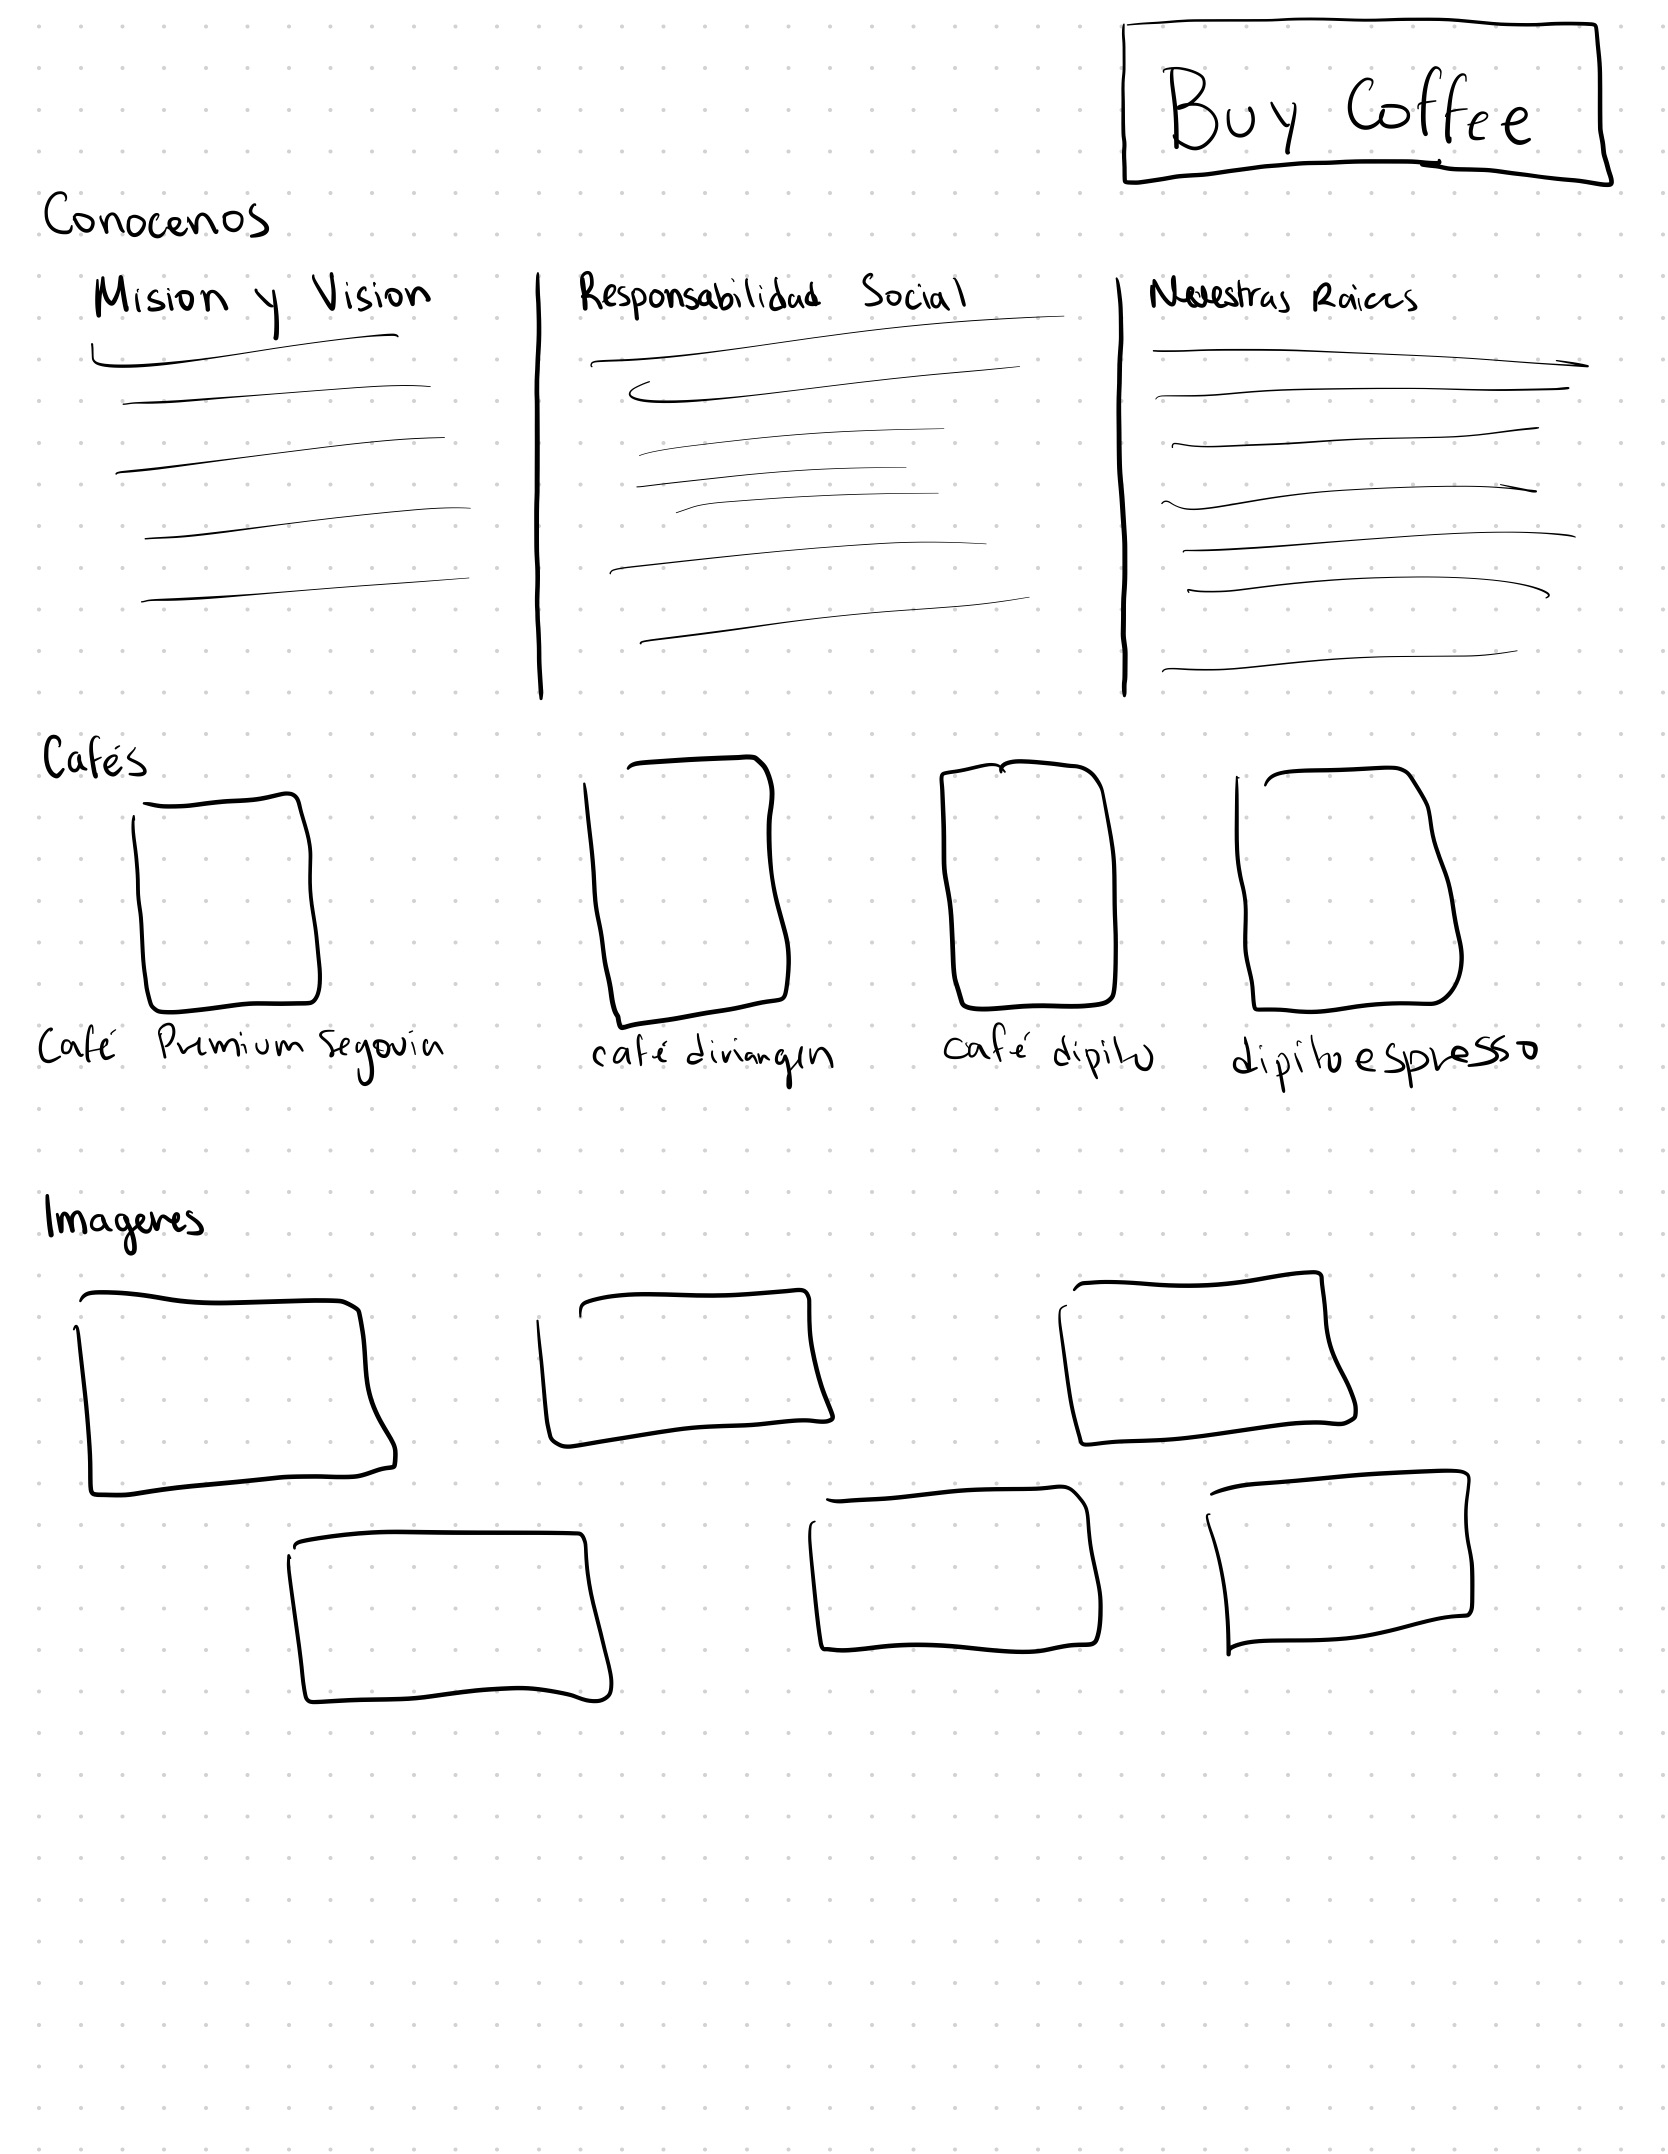 Buy Coffee
Conocenos
Mision y Vision
Responsabilidad Social
Nuestras Raices
Cafés
Café Premium Segovia
café diriangen
café dipilto
dipilto espresso
Imagenes